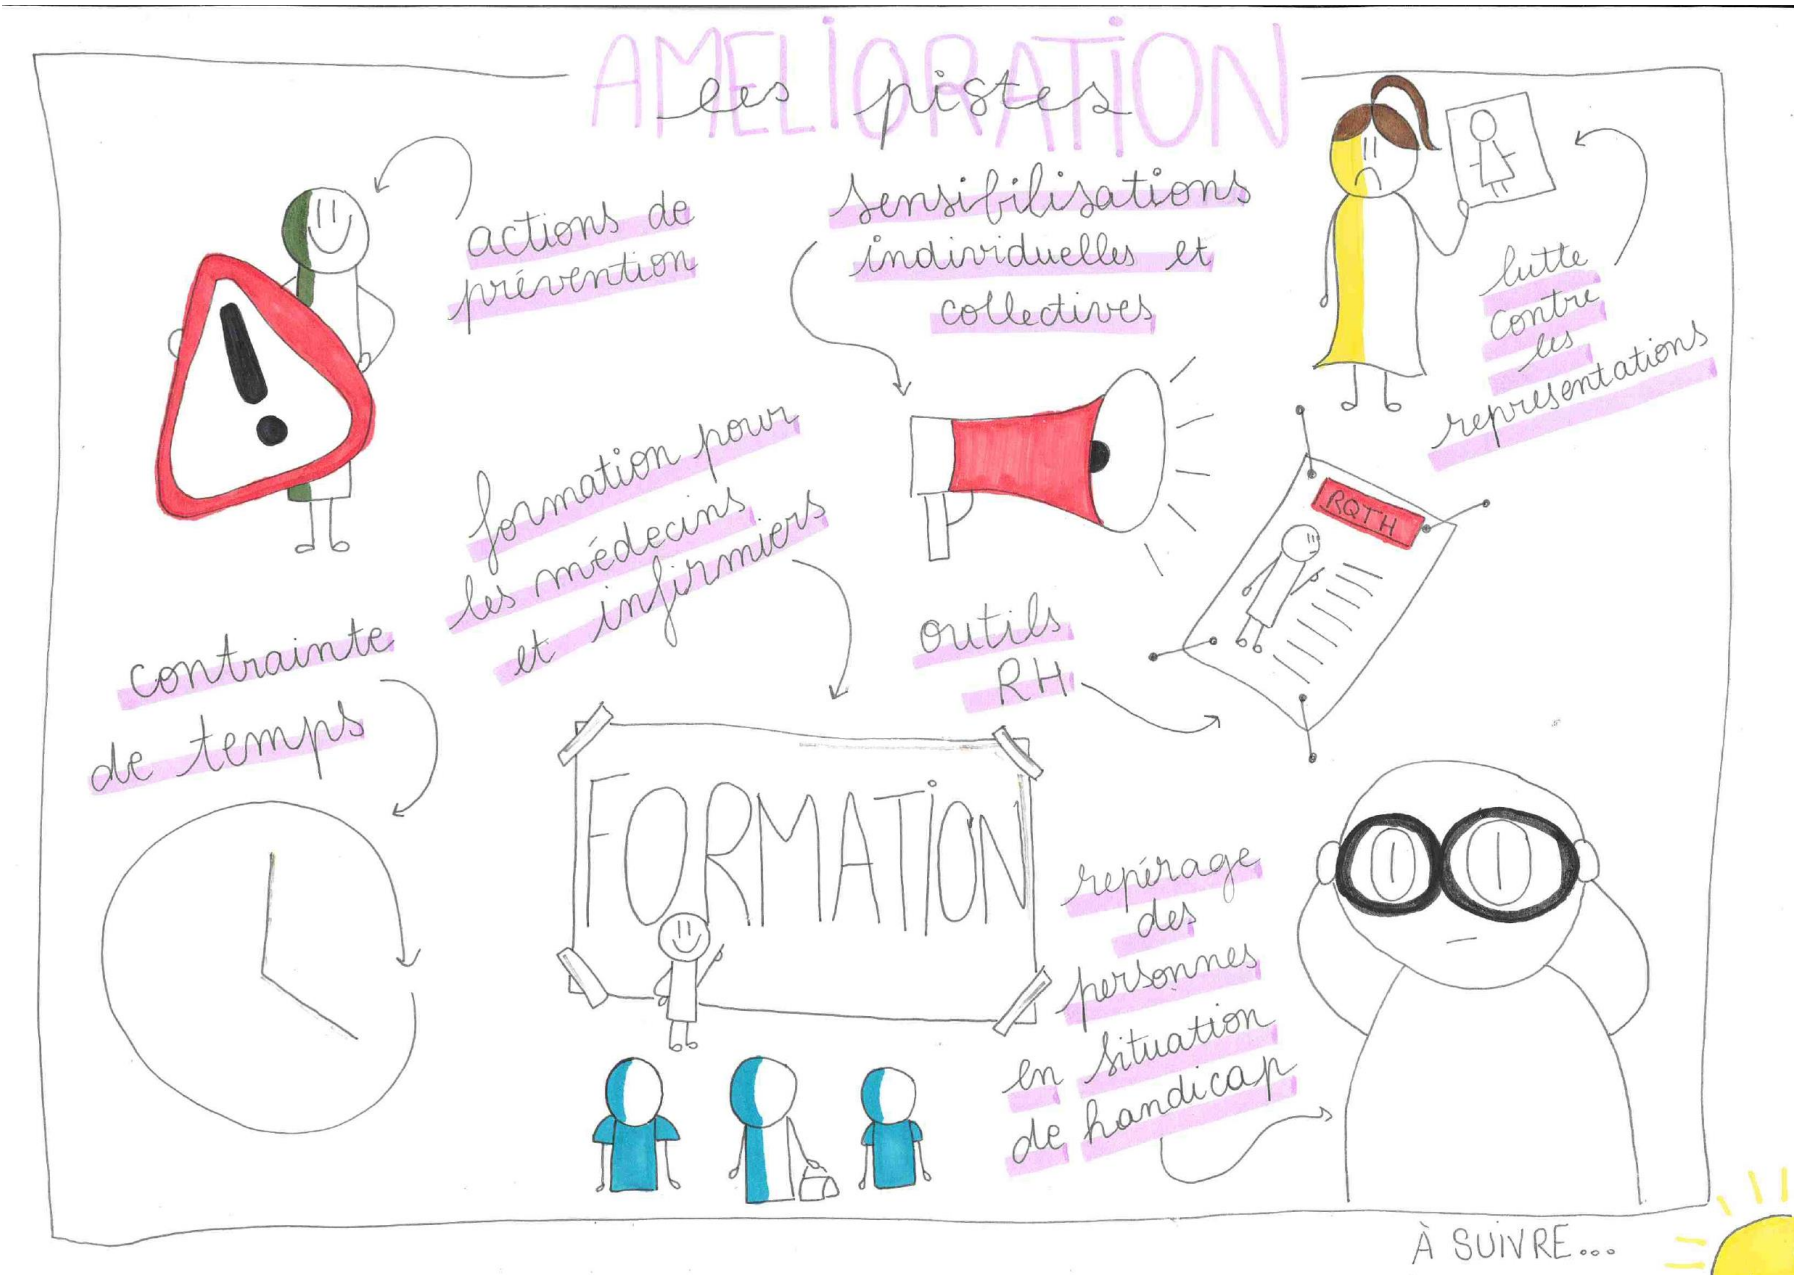 AMELIORATION
les pistes
actions de
prévention
sensibilisations
individuelles et
collectives
lutte
contre
les
représentations
formation pour
les médecins
et infirmiers
RQTH
outils
RH
contrainte
de temps
FORMATION
repérage
des
personnes
en situation
de handicap
À SUIVRE...